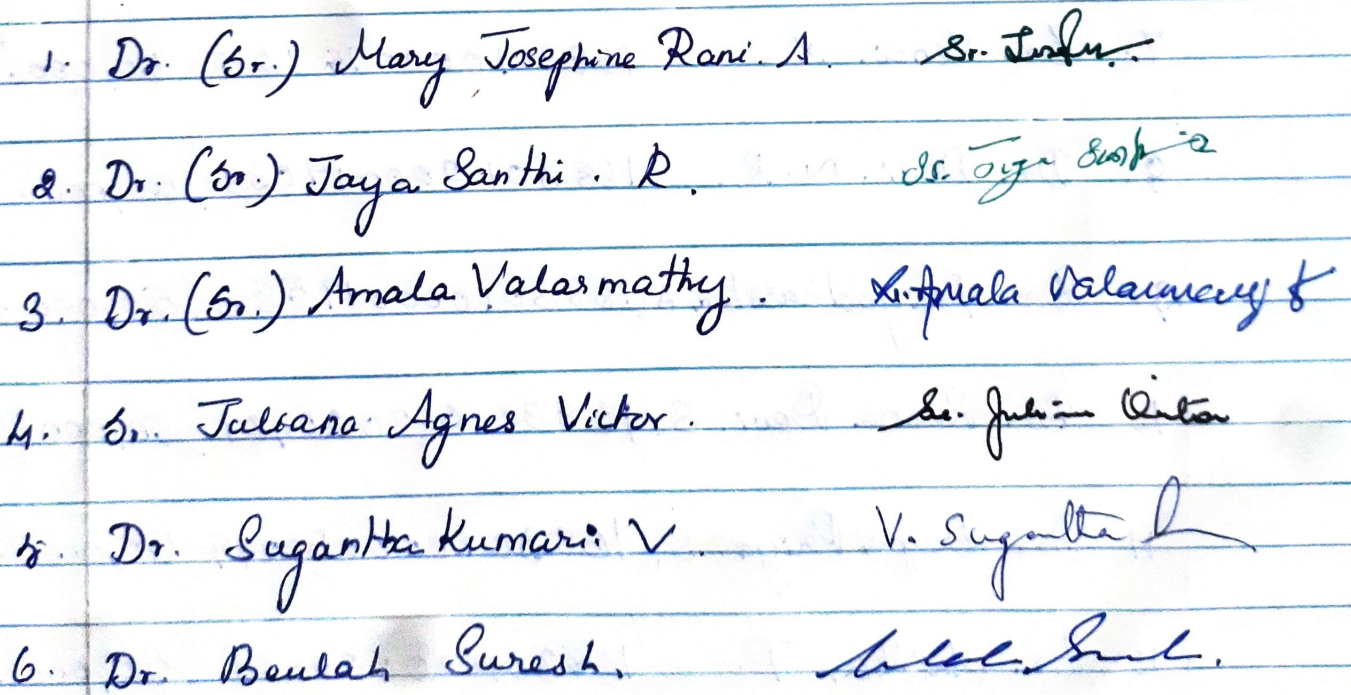 1. Dr. (Sr.) Mary Josephine Rani. A. Sr. Josephine
2. Dr. (Sr.) Jaya Santhi. R. Sr. Jaya Santhi
3. Dr. (Sr.) Amala Valarmathy. Sr. Amala Valarmathy
4. Sr. Juliana Agnes Victor. Sr. Juliana Victor
5. Dr. Sugantha Kumari. V. V. Sugantha
6. Dr. Beulah Suresh.